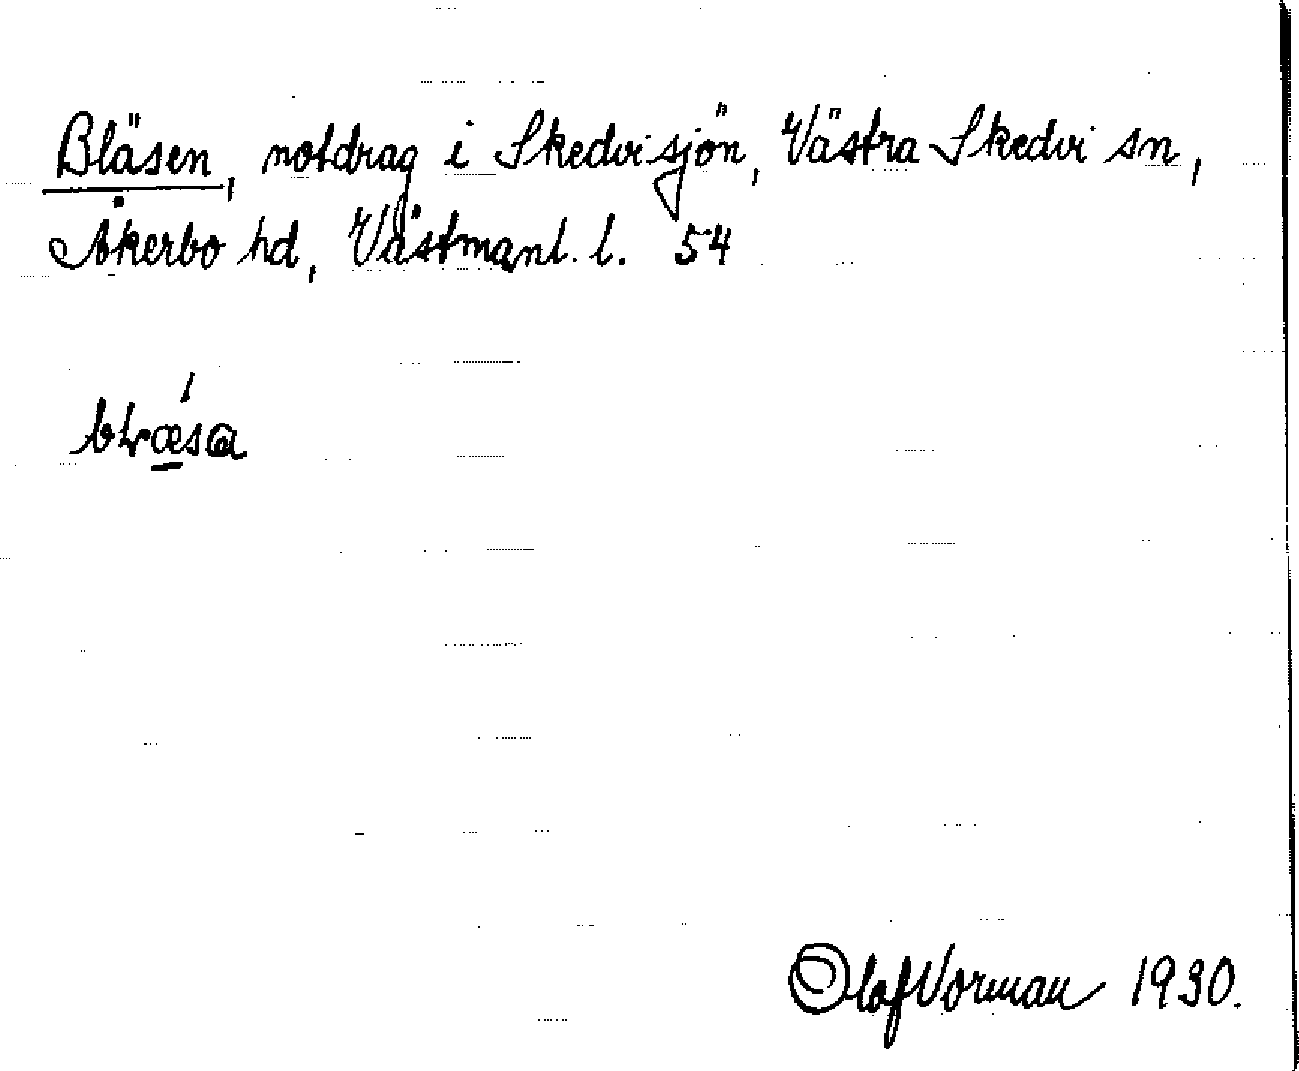 Bläsen, notdrag i Skedvisjön, Västra Skedvi sn,
Åkerbo hd, Västmanl. l. 54
Olof Vorman 1930.